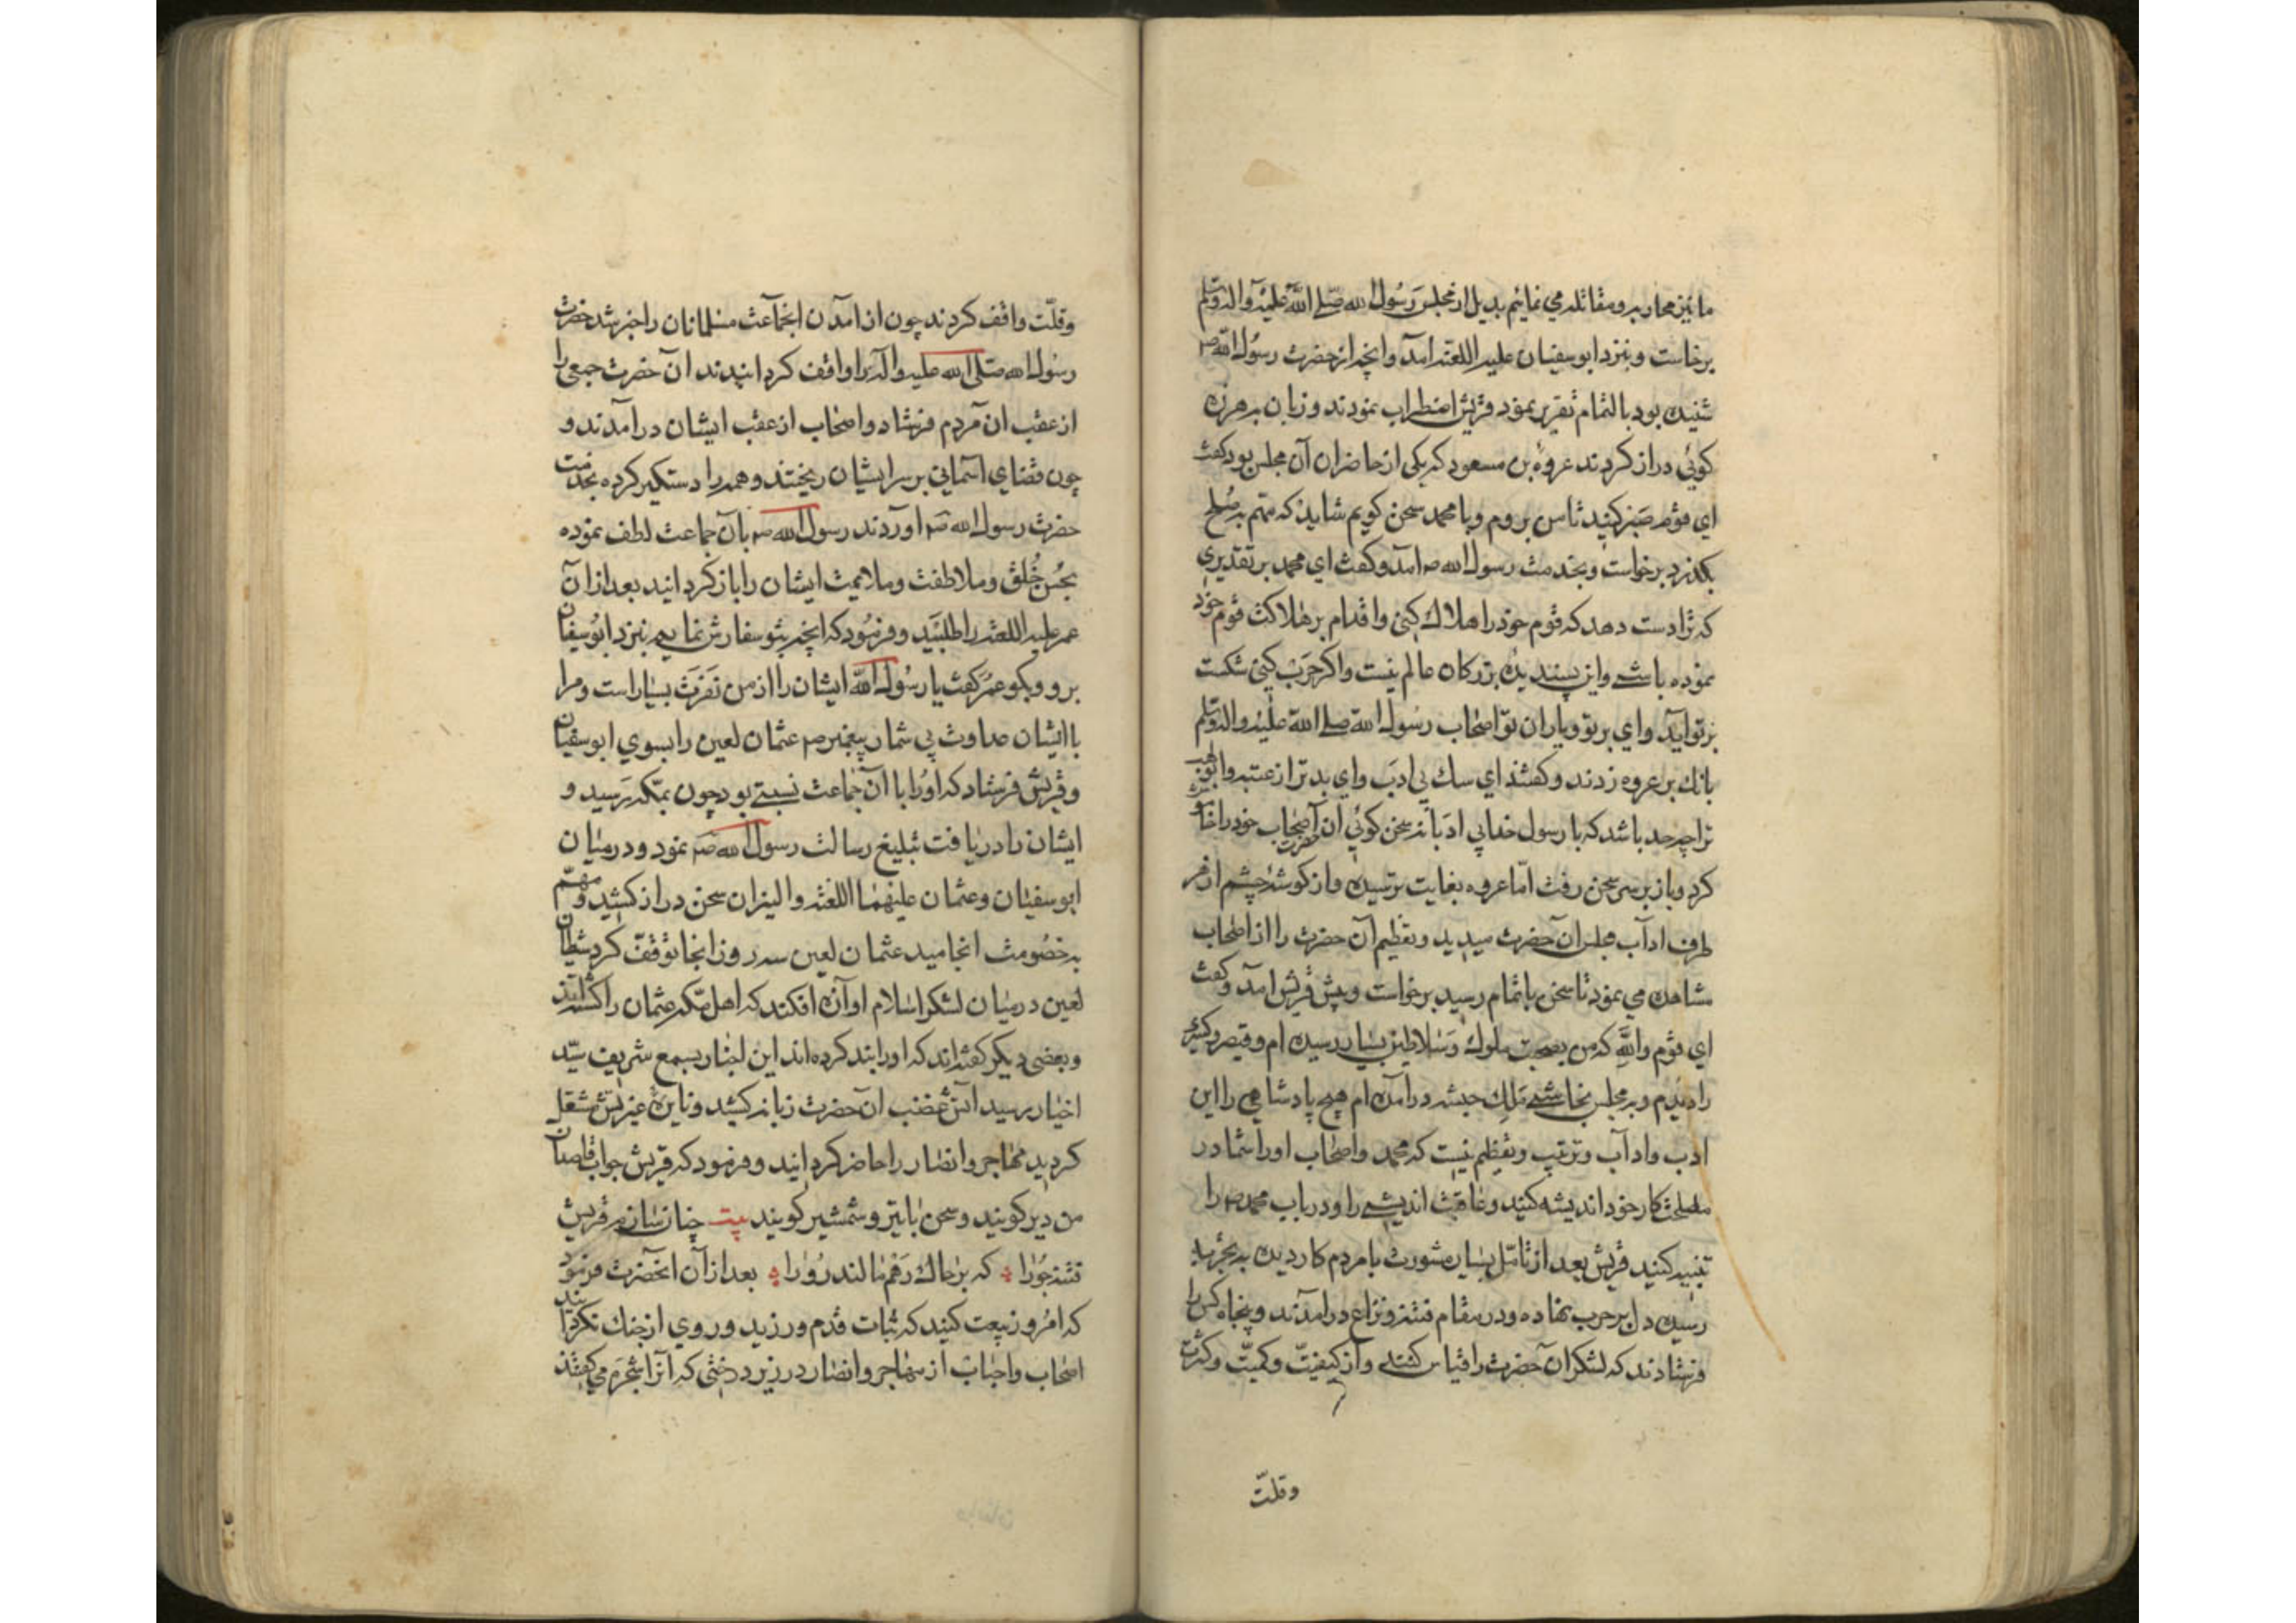 ما نیز محاربه و مقاتله می نمائیم بدیل از مجلس رسول الله صلی الله علیه واله وسلم
برخاست و بنزد ابوسفیان علیه اللعنه امد وانچه از حضرت رسول الله صم
شنیده بود بالتمام تقریر نمود قریش اضطراب نمودند و زبان بهرزه
کوئی دراز کردند عروه بن مسعود که یکی از حاضران آن مجلس بود کفت
ای قوم صبر کنید تا من بروم وبا محمد سخن کویم شاید که مهم به صلح
بکذرد برخواست و بخدمت رسول الله صم امد وکفت ای محمد بر تقدیری
که ترا دست دهد که قوم خود را هلاک کنی واقدام بر هلاکت قوم خود
نموده باشی واین پسندیده بزرکان عالم نیست واکر حرب کنی شکست
بر تو اید وای بر تو ویاران تو اصحاب رسول الله صلی الله علیه واله وسلم
بانک بر عروه زدند وکفتند ای سک بی ادب وای بدتر از عتبه و
ترا چه حد باشد که با رسول خدا بی ادبانه سخن کوئی آن حضرت اصحاب خود را
کرد وباز بر سر سخن رفت امّا عروه بغایت ترسیده واز کوشه چشم از هر
طرف اداب مجلس آن حضرت میدید وتعظیم آن حضرت را از اصحاب
مشاهده می نمود تا سخن باتمام رسید برخواست وپیش قریش امد وکفت
ای قوم والله که من بصحبت ملوک وسلاطین بسیار رسیده ام وقیصر وکسری
را دیدم ودر مجلس نجاشی ملک حبشه درامده ام هیچ پادشاهی را این
ادب واداب وترتیب وتعظیم نیست که محمد واصحاب او را شما در
مصلحت کار خود اندیشه کنید وعاقبت اندیشی را ودر باب محمد صم را
تنبیه کنید قریش بعد از تامّل بسیار مشورت با مردم کار دیده به تجربه
رسیده دل بر حرب نهاده ودر مقام فتنه ونزاع درامدند وپنجاه کس را
فرستادند که لشکر آن حضرت را قیاس کنند واز کیفیّت وکمیّت وکثرت
وقلّت
وقلّت واقف کردند چون از امدن انجماعت مسلمانان را خبر شد حضرت
رسول الله صلی الله علیه واله را واقف کردانیدند ان حضرت جمعی را
از عقب ان مردم فرستاد واصحاب از عقب ایشان درامدند و
چون قضای اسمانی بر سر ایشان ریختند وهمه را دستکیر کرده بخدمت
حضرت رسول الله صم اوردند رسول الله صم بآن جماعت لطف نموده
بحسن خُلق وملاطفت وملایمت ایشان را باز کردانید بعد از آن
عمر علیه اللعنه را طلبید وفرمود که انچه بتو سفارش نمایم بنزد ابوسفیان
برو وبکو عمر کفت یا رسول الله ایشان را از من نفرت بسیار است ومرا
با ایشان عداوت بی شمار پیغمبر صم عثمان لعین را بسوی ابوسفیان
وقریش فرستاد که او را با آن جماعت نسبتی بود چون بمکه رسید و
ایشان را دریافت تبلیغ رسالت رسول الله صم نمود ودر میان
ابوسفیان وعثمان علیهما اللعنه والنیران سخن دراز کشید ومهمّ
به خصومت انجامید عثمان لعین سه روز انجا توقّف کرد شیطان
لعین در میان لشکر اسلام اوازه افکند که اهل مکه عثمان را کشته اند
وبعضی دیکر کفته اند که او را بند کرده اند این اخبار بسمع شریف سیّد
اخیار رسید اتش غضب آن حضرت زبانه کشید ونایره غیرتش مشتعل
کردید مهاجر وانصار را حاضر کردانید وفرمود که قریش جواب قاصدان
من دیر کویند وسخن با تیر وشمشیر کویند بیت چنان سازم قریش
فتنه جو را که بر خاک رهم مالند رو را بعد از آن انحضرت فرمود
که امروز بیعت کنید که ثبات قدم ورزید وروی از جنک نکردانید
اصحاب واحباب از مهاجر وانصار در زیر درختی که آنرا شجره می کفتند